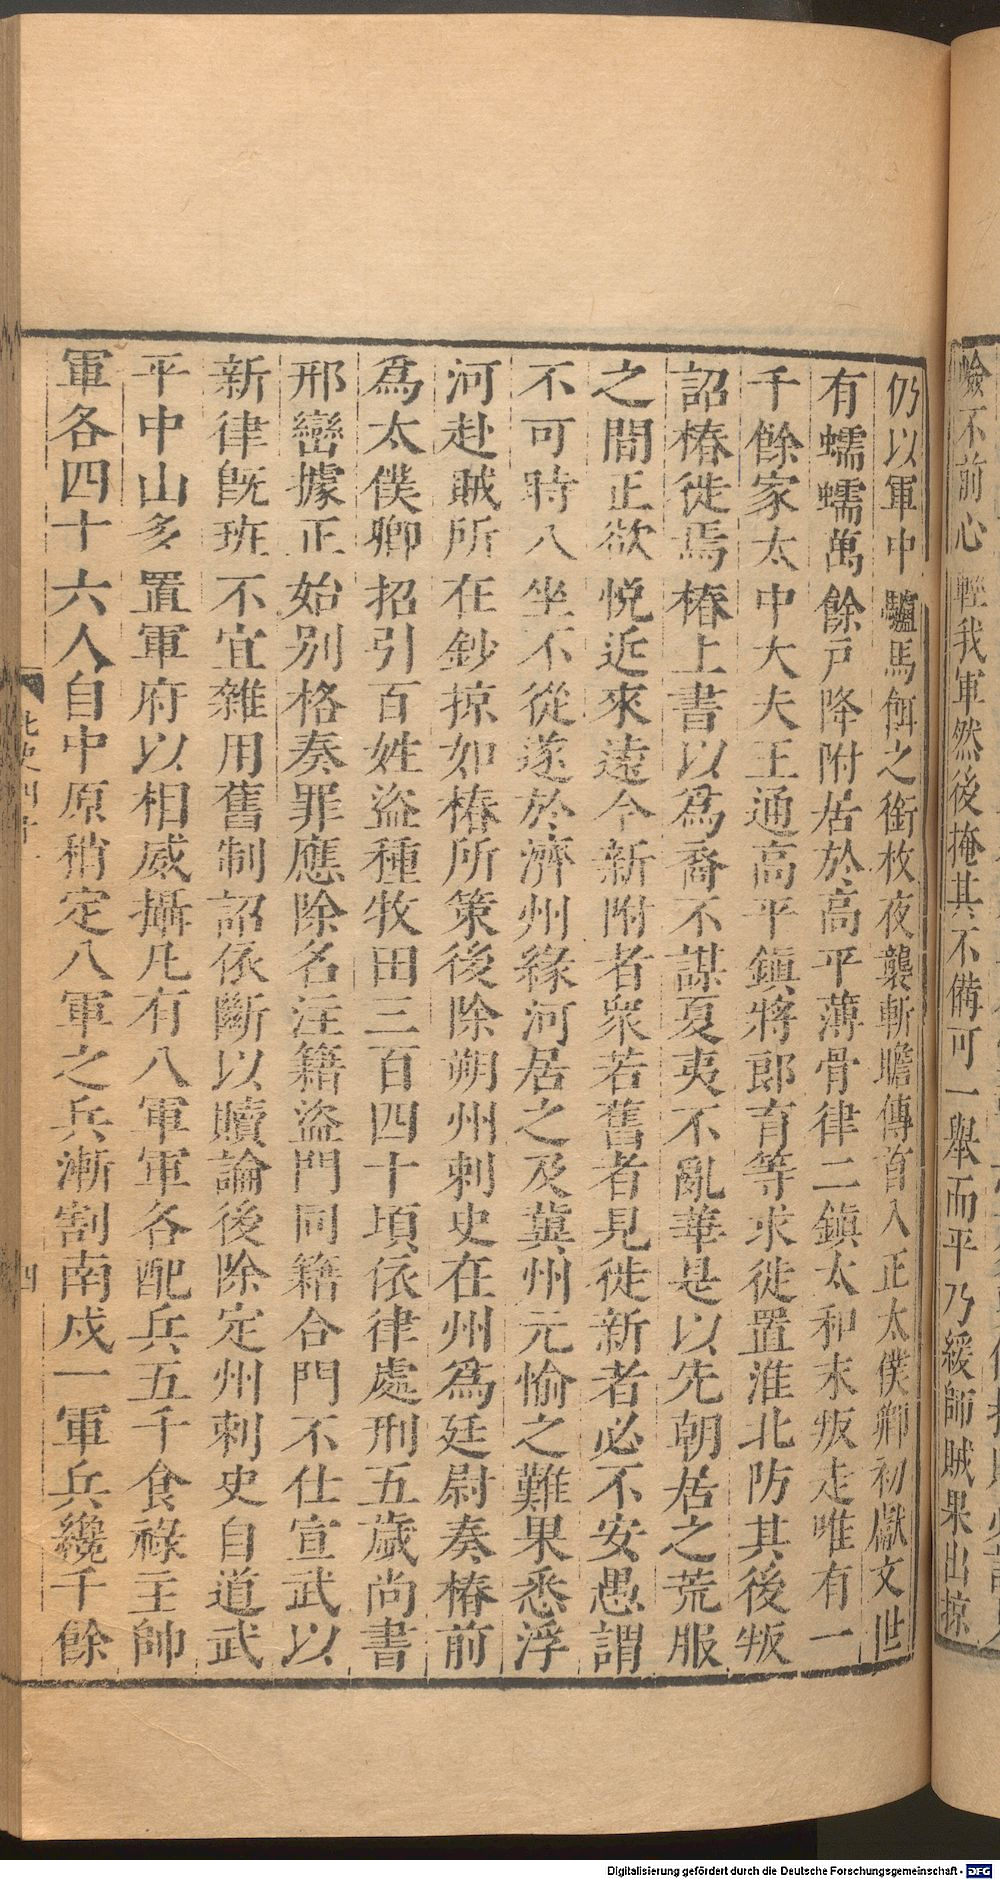 險不前心輕我軍然後掩其不備可一舉而平乃緩師賊果出掠
仍以軍中驢馬餌之銜枚夜襲斬瞻傳首入正太僕卿初獻文世
有蠕蠕萬餘戸降附居於高平薄骨律二鎮太和末叛走唯有一
千餘家太中大夫王通高平鎮將郎育等求徙置淮北防其後叛
詔椿徙焉椿上書以爲裔不謀夏夷不亂華是以先朝居之荒服
之間正欲悅近來遠今新附者衆若舊者見徙新者必不安愚謂
不可時八坐不從遂於濟州緣河居之及冀州元愉之難果悉浮
河赴賊所在鈔掠如椿所策後除朔州刺史在州爲廷尉奏椿前
爲太僕卿招引百姓盜種牧田三百四十頃依律處刑五歲尚書
邢巒據正始別格奏罪應除名注籍盜門同籍合門不仕宣武以
新律旣班不宜雜用舊制詔依斷以贖論後除定州刺史自道武
平中山多置軍府以相威攝凡有八軍軍各配兵五千食祿主帥
軍各四十六人自中原稍定八軍之兵漸割南戍一軍兵纔千餘
北史
四
Digitalisierung gefördert durch die Deutsche Forschungsgemeinschaft - DFG